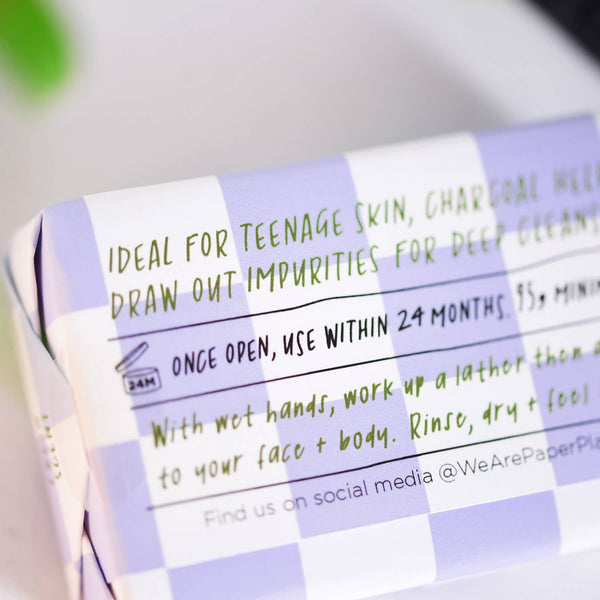 IDEAL FOR TEENAGE SKIN, CHARCOAL HELP
DRAW OUT IMPURITIES FOR DEEP CLEANS
24M ONCE OPEN, USE WITHIN 24 MONTHS. 95g MINI
With wet hands, work up a lather then a
to your face + body. Rinse, dry + feel
Find us on social media @WeArePaperPla